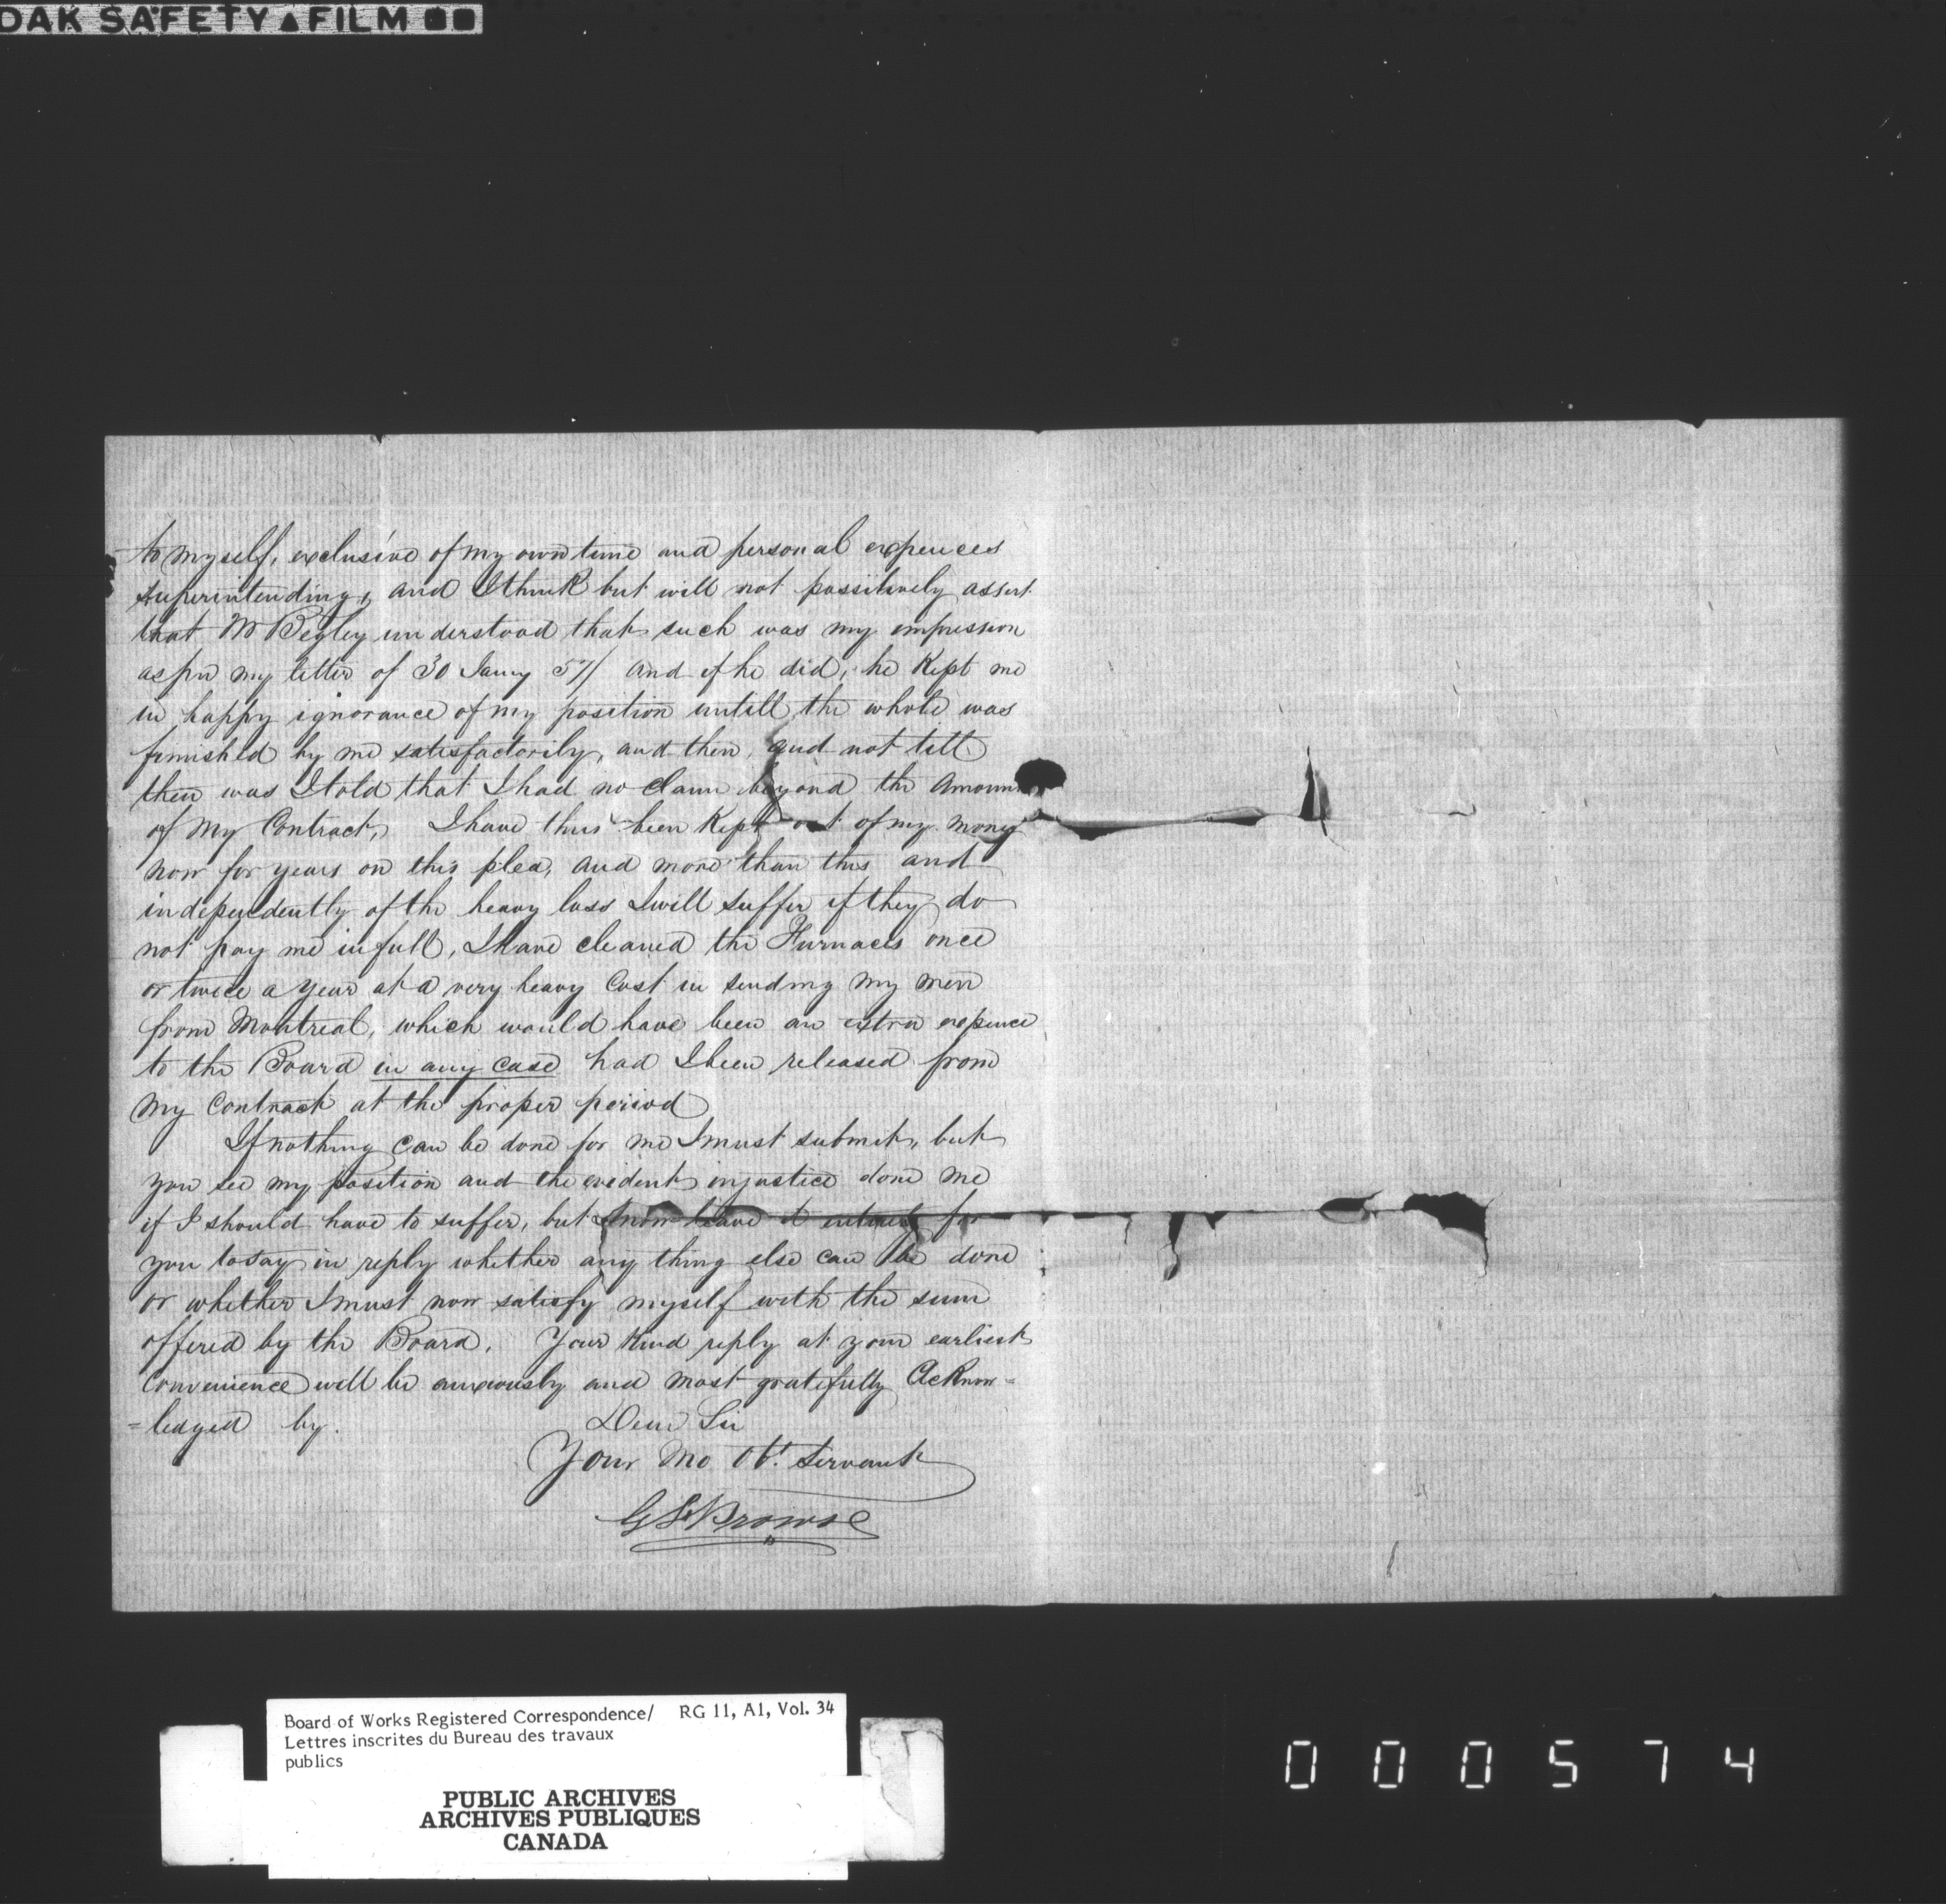 DAK SAFETY FILM
to myself, exclusive of my own time and personal expences
superintending, and I think but will not possitively assert
that Mr Begley understood that such was my impression
as per my letter of 30 Jany 51/ and if he did, he Kept me
in happy ignorance of my position untill the whole was
finished by me satisfactorily, and then, and not till
then was I told that I had no claim beyond the Amount
of my Contract, I have thus been Kept out of my money
now for years on this plea, and more than this and
independently of the heavy loss I will suffer if they do
not pay me in full, I have cleaned the Furnaces once
or twice a year at a very heavy Cost in sending my men
from Montreal, which would have been an extra expence
to the Board in any case had I been released from
my Contract at the proper period
If nothing can be done for me I must submit, but
you see my position and the evident injustice done me
if I should have to suffer, but I now leave it entirely for
you to say in reply whether any thing else can be done
or whether I must now satisfy myself with the sum
offered by the Board. Your Kind reply at your earliest
Convenience will be anxiously and most gratefully Acknow=
=ledged by.
Dear Sir
Your Mo Ob.t Servant
G B Browne
Board of Works Registered Correspondence/ RG 11, A1, Vol. 34
Lettres inscrites du Bureau des travaux
publics
PUBLIC ARCHIVES
ARCHIVES PUBLIQUES
CANADA
000574